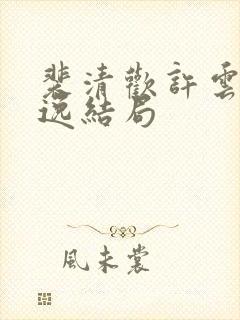 裴清歡許雲
逸結局
風未裳